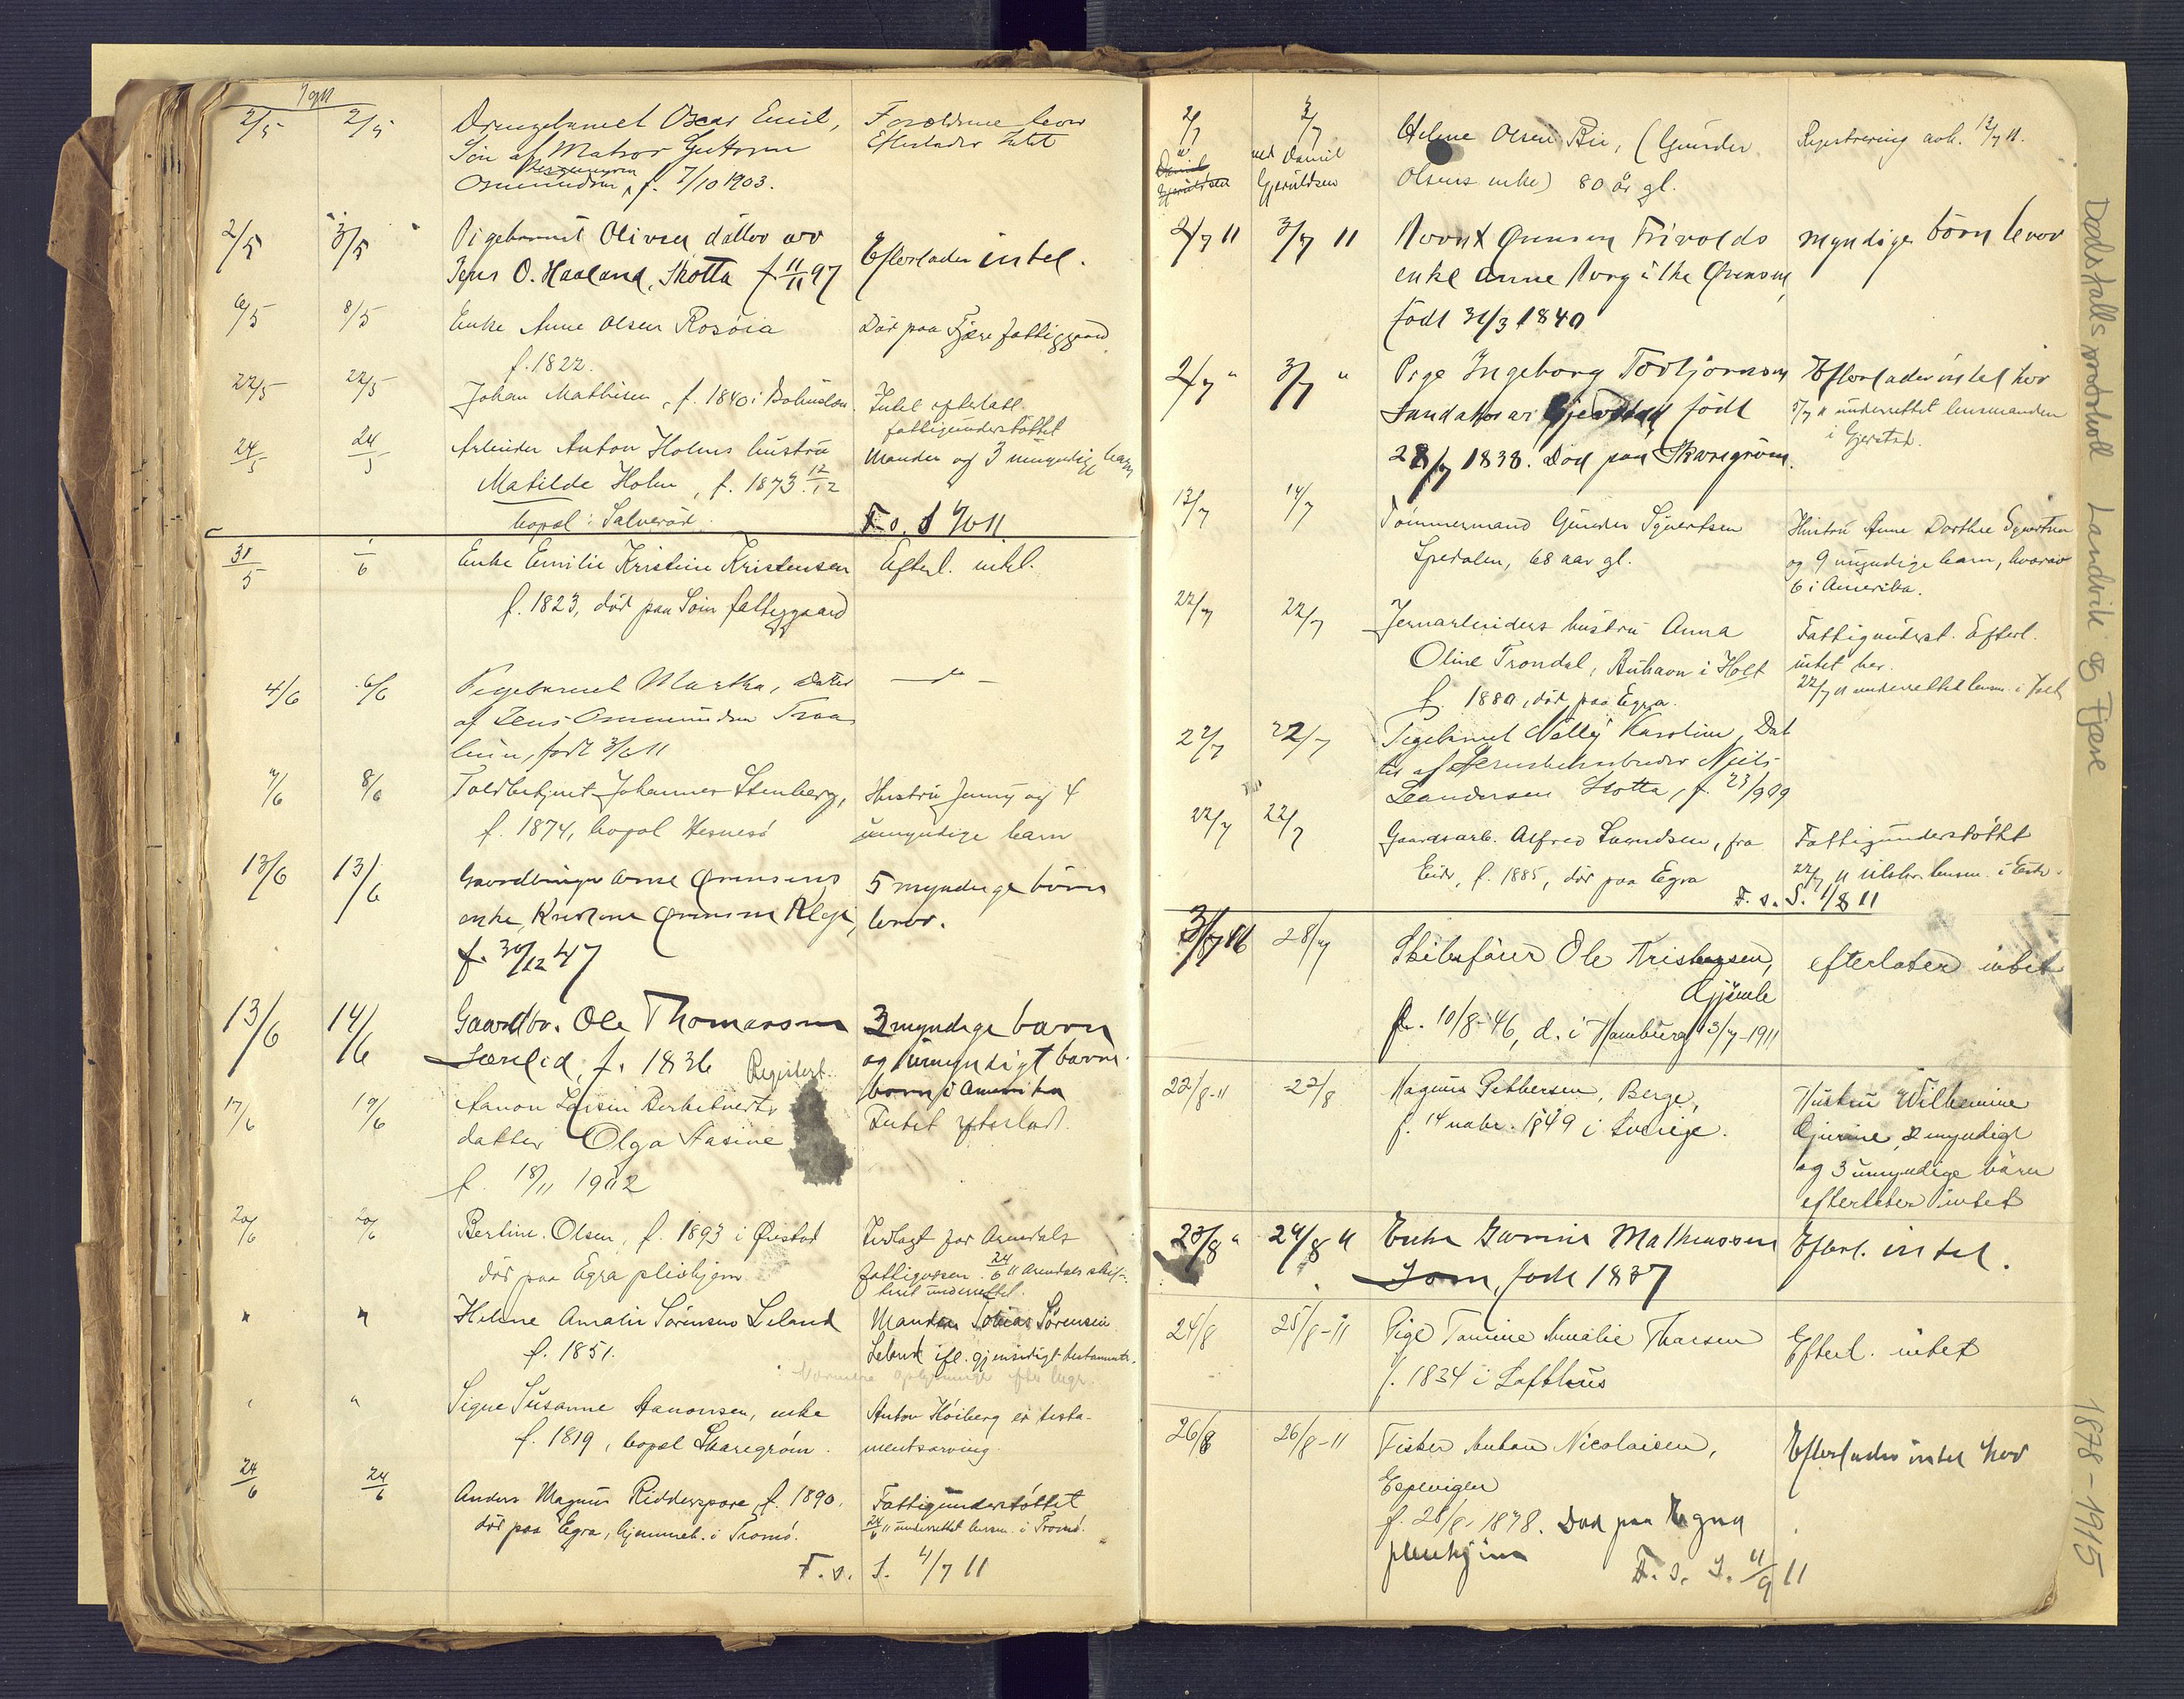 1911
2/5 2/5 Drengebarnet Oscar Emil, Forældrene lever
Søn af Matros Guttorm Efterlader Intet
Osmundsen, f. 7/10 1903.
2/5 3/5 Pigebarnet Olivia datter av
Jens O. Haaland, Skotta f 11/11 97 Efterlader intet.
6/5 8/5 Enke Anne Olsen Rosøia Død paa Fjære fattiggaard
f. 1822.
22/5 22/5 Johan Mathisen, f. 1840 i Bohuslen. Intet efterlatt.
fattigunderstøttet
24/5 24/5 Arbeider Anton Holms hustru Manden og 3 umyndige barn
Matilde Holm, f. 1873 12/12
bopæl: Salverød. F. s. S 1/6 11
31/5 1/6 Enke Emilie Kristine Kristensen Efterl. intet.
f. 1823, død paa Søm fattiggaard
4/6 6/6 Pigebarnet Martha, Datter — " —
af Jens Ommundsen
født 3/6 11
7/6 8/6 Toldbetjent Johannes Stenberg, Hustru Jenny og 4
f. 1874, bopæl Hesnesø umyndige barn
13/6 13/6 Gaardbruger Arne Ømsens 5 myndige børn
enke, f. 30/12 47 lever.
13/6 14/6 Gaardbr. Ole Thomassen 3 myndige barn
f. 1836 Registert. og 1 umyndigt barne
barn i Amerika
17/6 19/6 Aanon Larsen Berhitverts Intet efterladt.
datter Olga Stasine
f. 18/11 1902
20/6 20/6 Bertine Olsen, f. 1893 i Øiestad Indlagt for Arendals
død paa Egra pleiehjem fattigvæsen. 24/6 11 Arendals skif-
teret underrettet.
" " Helene Amalie Sørensen Leland Manden Tobias Sørensen
f. 1851. Leland ifl. gjensidigt testamente.
Nærmere oplysninger
" " Signe Susanne Aanonsen, enke Anton Høiberg er testa-
f. 1819, bopæl Skaregrøm. mentsarving.
24/6 24/6 Anders Magnus Ridderspore, f. 1890. Fattigunderstøttet
død paa Egra, hjemmeh. i Tromø. 24/6 11 underrettet lensm. i Tromø.
F. s. S. 4/7 11
2/7 3/7 Helene Olsen Bie, (Gunder Registrering avh. 12/7 11.
ved Daniel
Gjeruldsen Olsens enke) 80 år gl.
2/7 11 3/7 11 Ømsen Frivolds myndige børn lever
enke Anne
født 31/3 1840
2/7 " 3/7 " Pige Ingeborg Torbjørnsen Efterlader intet her
Sundaker av Gjerstad født 5/7 11 underrettet lensmanden
28/7 1838. Død paa Skaregrøm. i Gjerstad.
13/7 14/7 Tømmermand Gunder Syvertsen Hustru Anne Dorthea Syvertsen
Spedalen, 68 aar gl. og 9 myndige barn, hvorav
6 i Amerika.
22/7 22/7 Jernarbeiders hustru Anna Fattigunderst. Efterl.
Oline Trondal, Buhavn i Holt intet her.
f. 1880, død paa Egra. 22/7 11 underrettet lensm. i Holt
22/7 22/7 Pigebarnet Nally Karoline, Dat
ter af Jernbanearbeider Niels
Leandersen Skotta, f. 23/9 09
22/7 22/7 Gaardsarb. Alfred Svendsen, fra Fattigunderstøttet
Eide, f. 1885, død paa Egra 22/7 11 tilskr. lensm. i Eide.
F. s. S. 1/8 11
28/7 Skibsfører Ole Kristensen, efterlater intet
Gjømle
f. 10/8-46, d. i Hamburg 13/7-1911
22/8-11 22/8 Magnus Pettersen, Berge, Hustru Wilhemine
f. 14 nobr. 1849 i Sverige. Gjurine, 2 myndige
og 3 umyndige børn
efterlater intet
23/8 " 24/8 11 Enke Gurine Mathiassen Efterl. intet.
Søm, født 1837
24/8 25/8-11 Pige Tomine Amalie Tharsen Efterl. intet
f. 1834 i Lofthus
26/8 26/8-11 Fisker Anton Nicolaisen, Efterlader intet her
Espevigen
f. 28/8 1878. Død paa Egra
pleiehjem F. s. S. 11/9 11
Dødsfallsprotokoll Landvik og Fjære 1878-1915